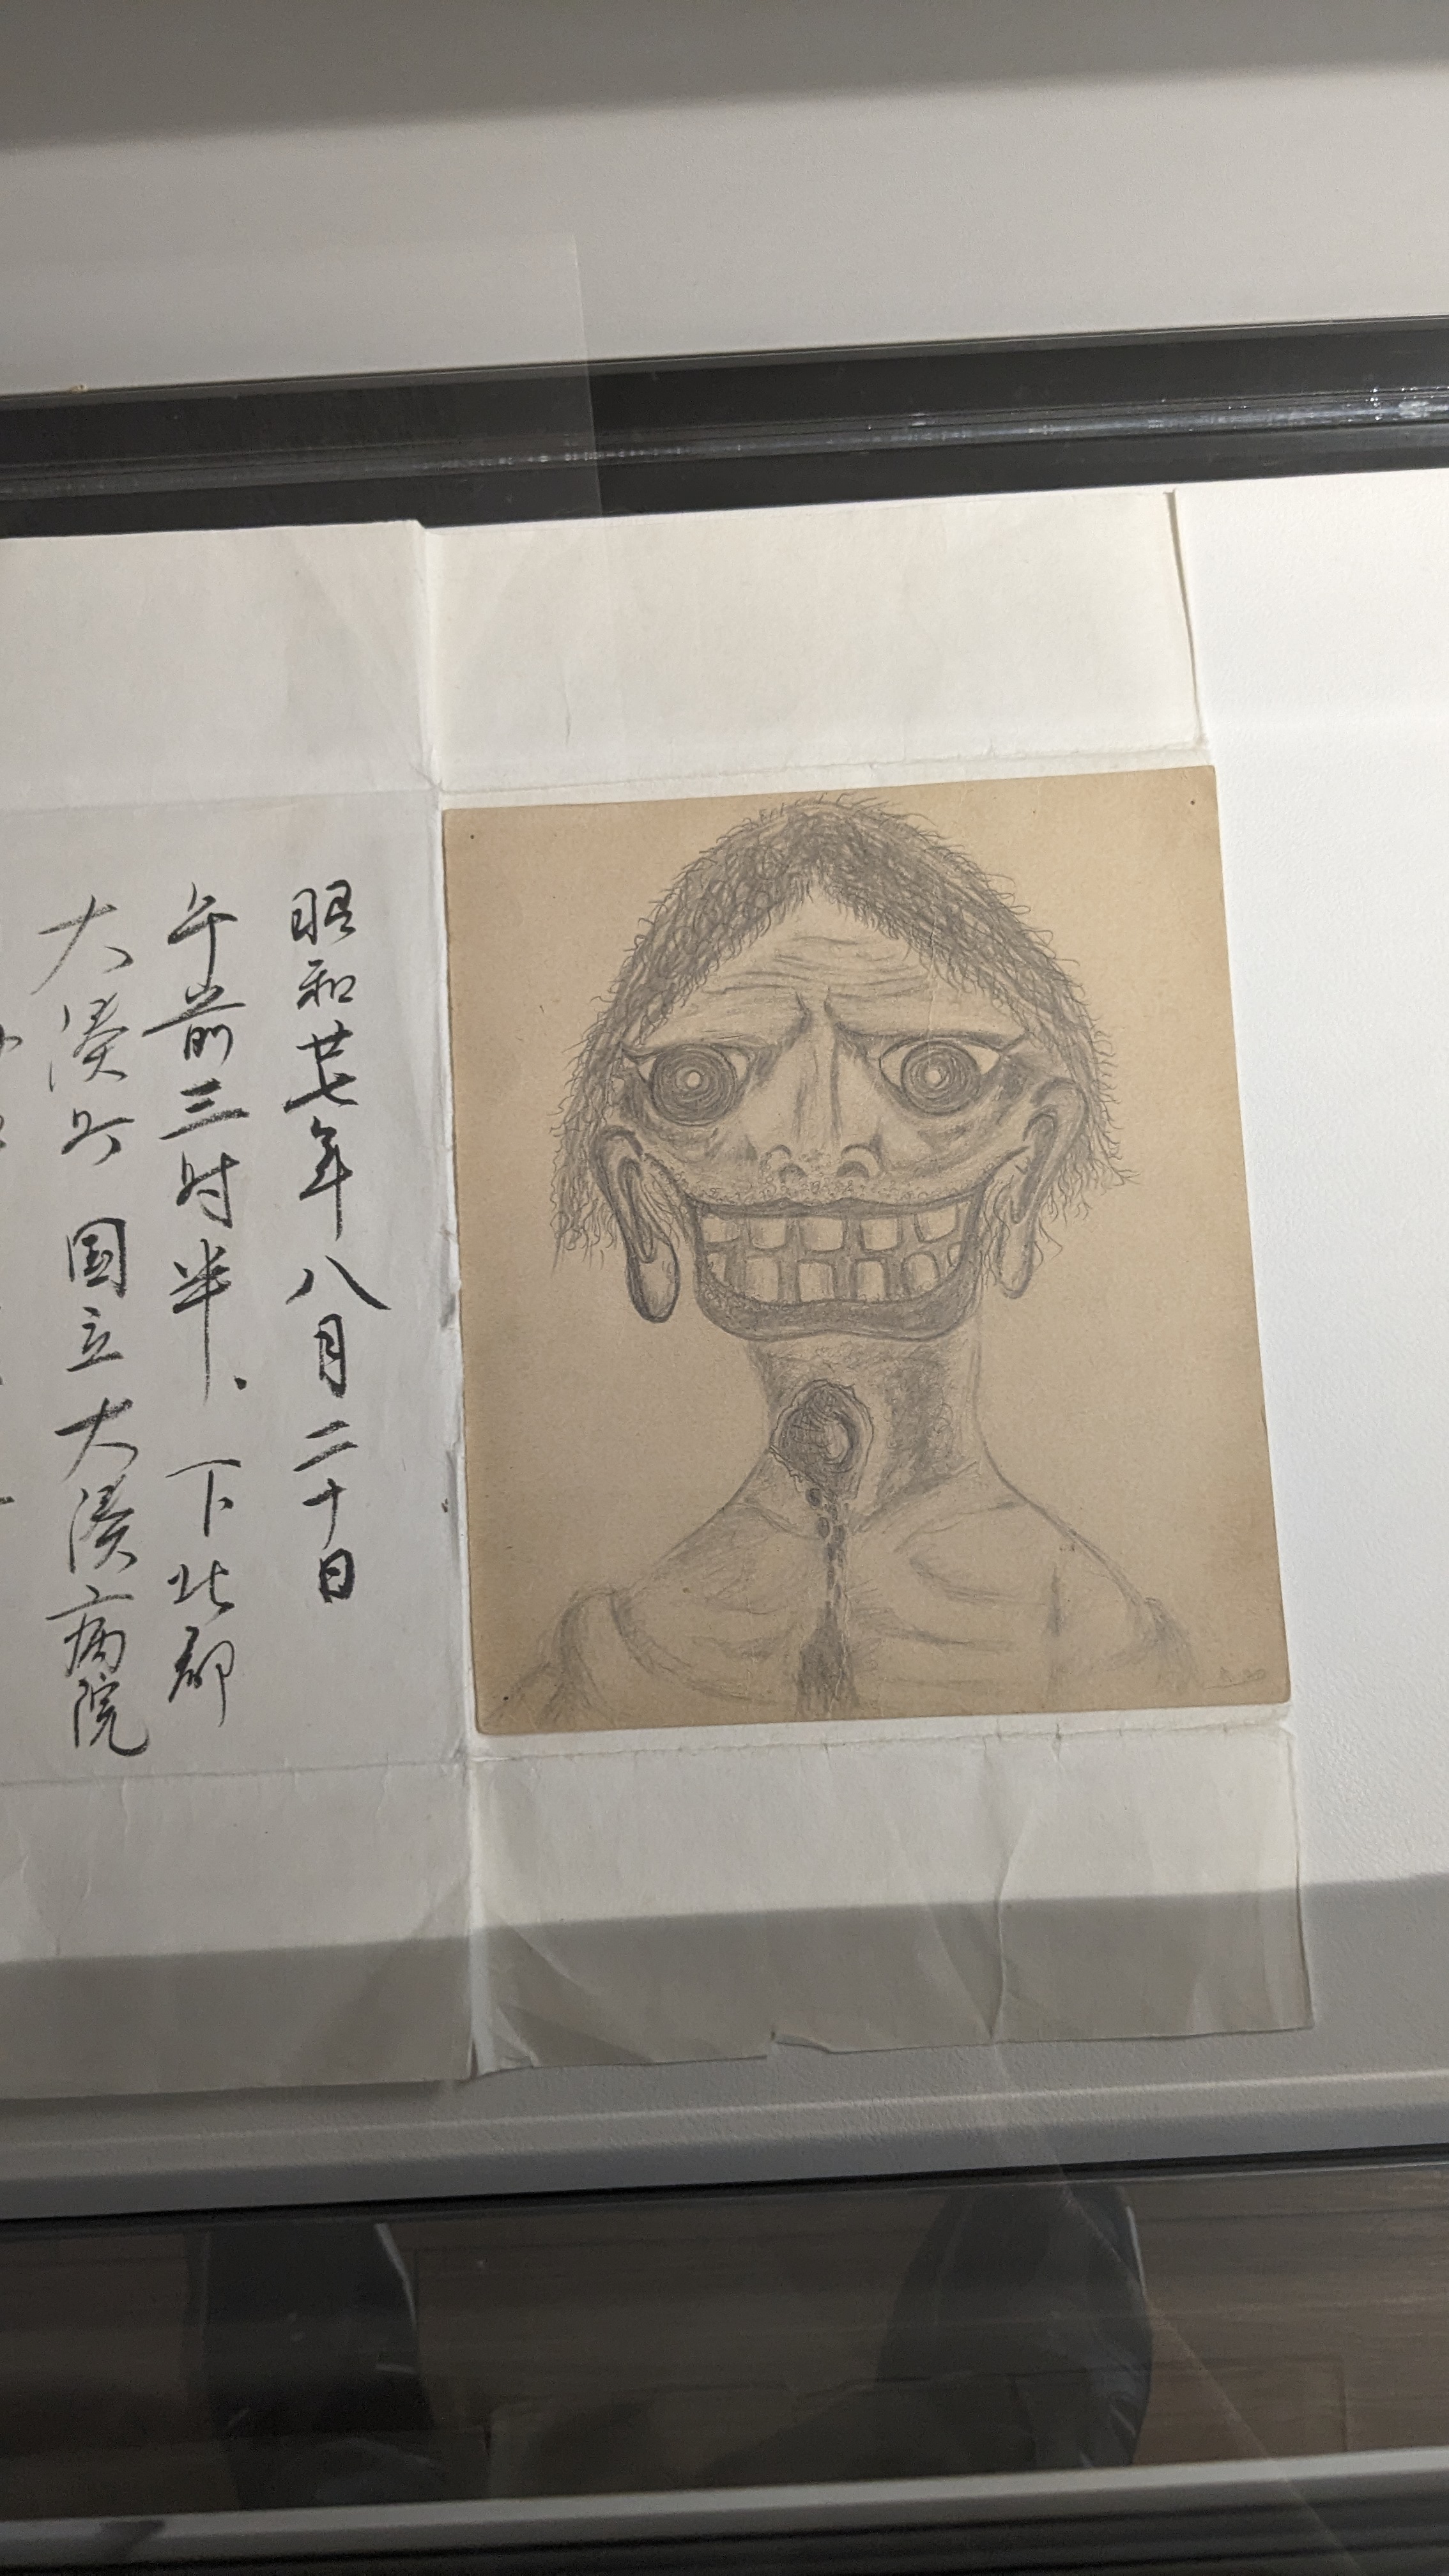 昭和廿七年八月二十日
午前三时半、下北郡
大湊町 国立大湊病院